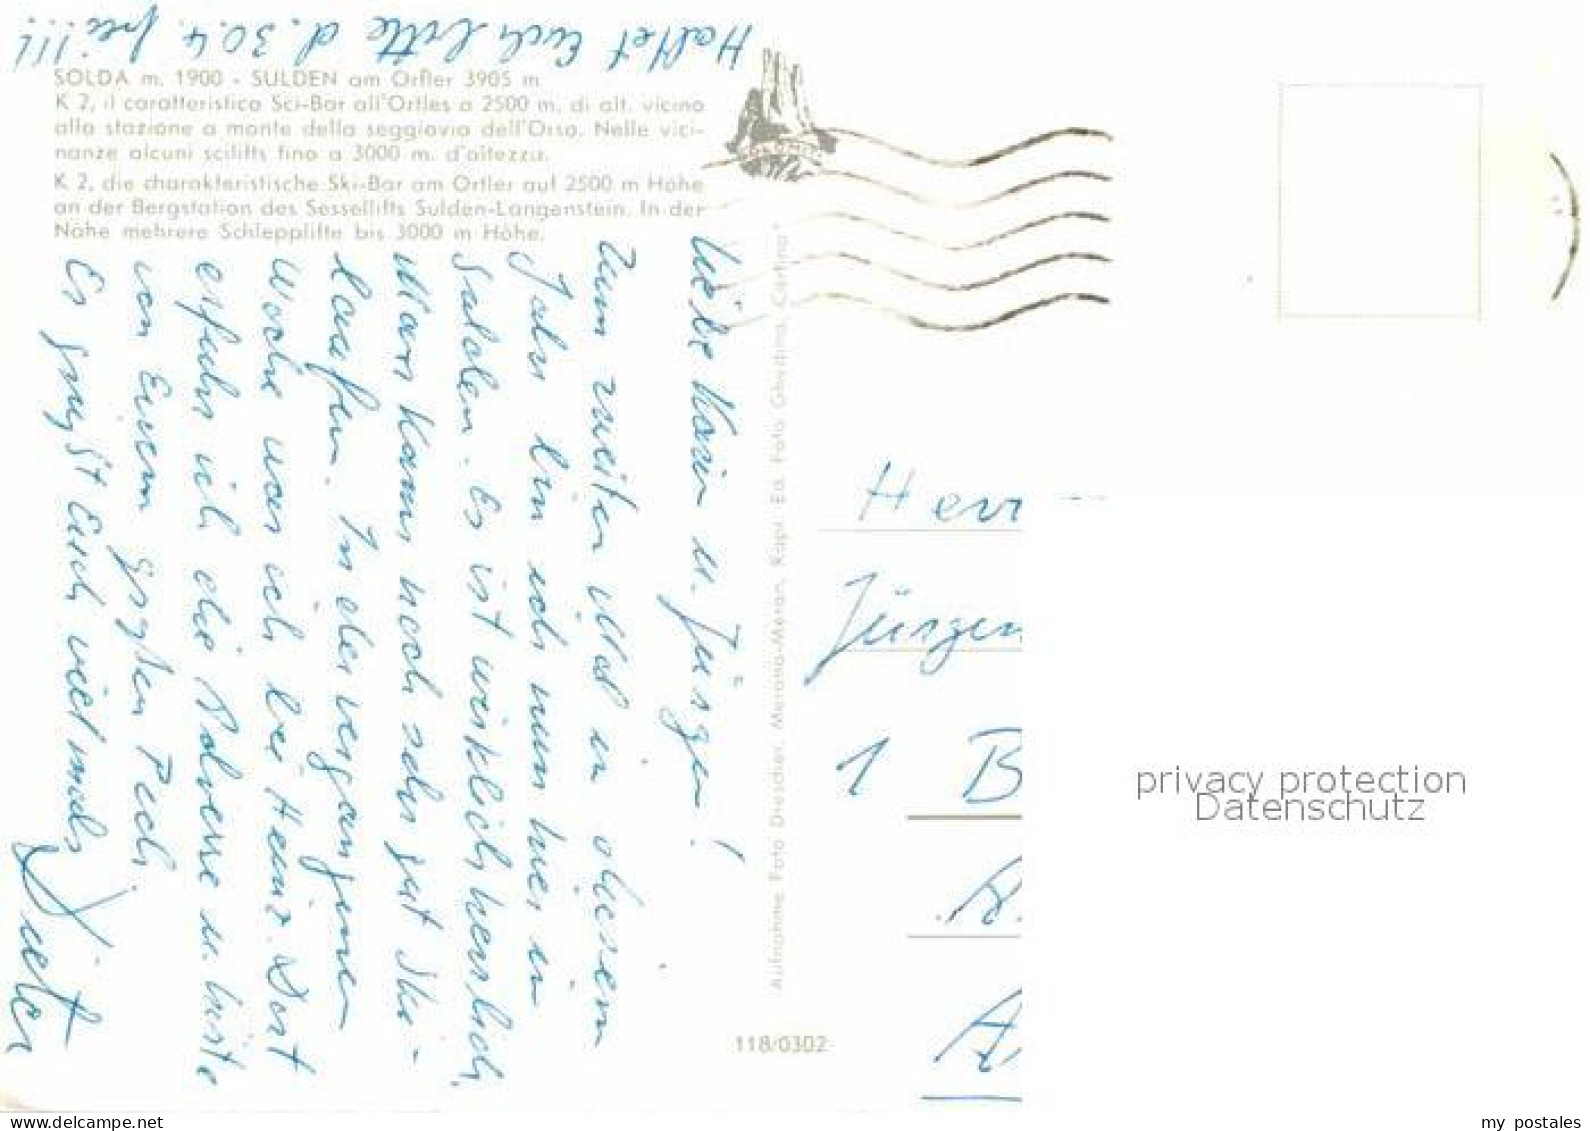 Haltet Euch bitte d. 30.4. frei!!!
SOLDA m. 1900 - SULDEN am Ortler 3905 m
K 2, il caratteristico Sci-Bar all'Ortles a 2500 m. di alt. vicino
alla stazione a monte della seggiovia dell'Orso. Nelle vici-
nanze alcuni scilifts fino a 3000 m. d'altezza.
K 2, die charakteristische Ski-Bar am Ortler auf 2500 m Höhe
an der Bergstation des Sesselifts Sulden-Langenstein. In der
Nähe mehrere Schlepplifte bis 3000 m Höhe.
Liebe Karin u. Jürgen!
Zum zweiten Mal in diesem
Jahr bin ich nun hier in
Sulden. Es ist wirklich herrlich.
Man kann noch sehr gut Ski-
laufen. In der vergangenen
Woche war ich bei Heinz. Dort
erfuhr ich die Adresse u. hörte
von Eurem großen Pech
Es grüßt Euch vielmals
Dieter
Aufnahme Foto Dresdler, Merano-Meran, Kapi - Ed. Foto Ghedina, Cortina
118/0302
Herr
Jürgen
1 B
A.
A
privacy protection
Datenschutz
my_postales